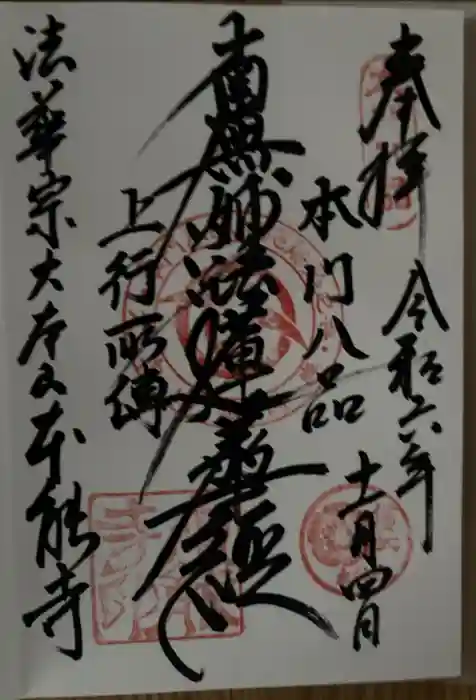 奉拝
令和六年
十一月四日
本門八品
南無妙法蓮華經
上行所傳
法華宗大本山本能寺